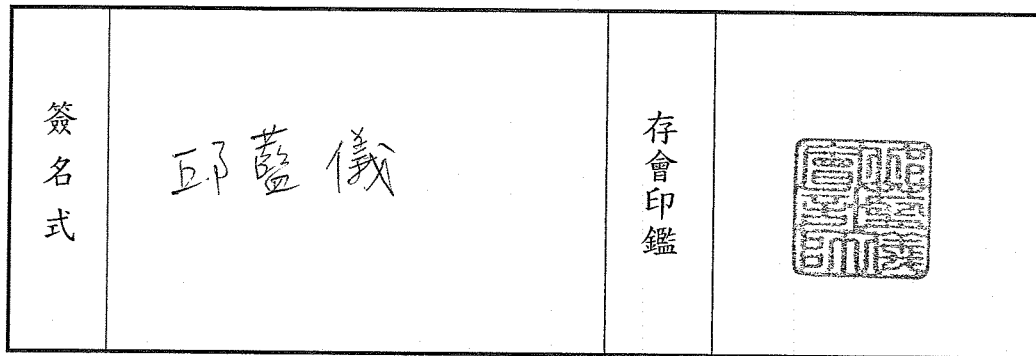 簽名式
邱藍儀
存會印鑑